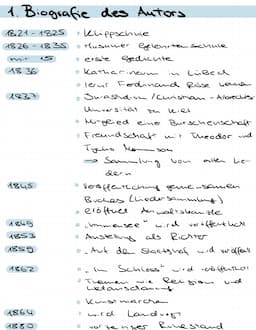 1. Biografie des Autors
1821 - 1825 Klippschule
1826 - 1835 Husumer Gelehrtenschule
mit 15 erste Gedichte
1836 Katharineum in Lübeck
lernt Ferdinand Röse kennen
1837 Jurastudium / Christian - Albrechts
Universität zu Kiel
Mitglied einer Burschenschaft
Freundschaft mit Theodor und
Tycho Mommsen
→ Sammlung von alten Lie-
dern
1845 Veröffentlichung gemeinsamen
Buches (Liedersammlung)
eröffnet Anwaltskanzlei
1849 "Immensee" wird veröffentlicht
1853 als Richter
1859 "Auf dem Staatshof" wird veröffentl.
1862 "Im Schloss" wird veröffentlicht
Themen wie Religion und
Kunstmärchen
1864 wird Landvogt
1880 Ruhestand